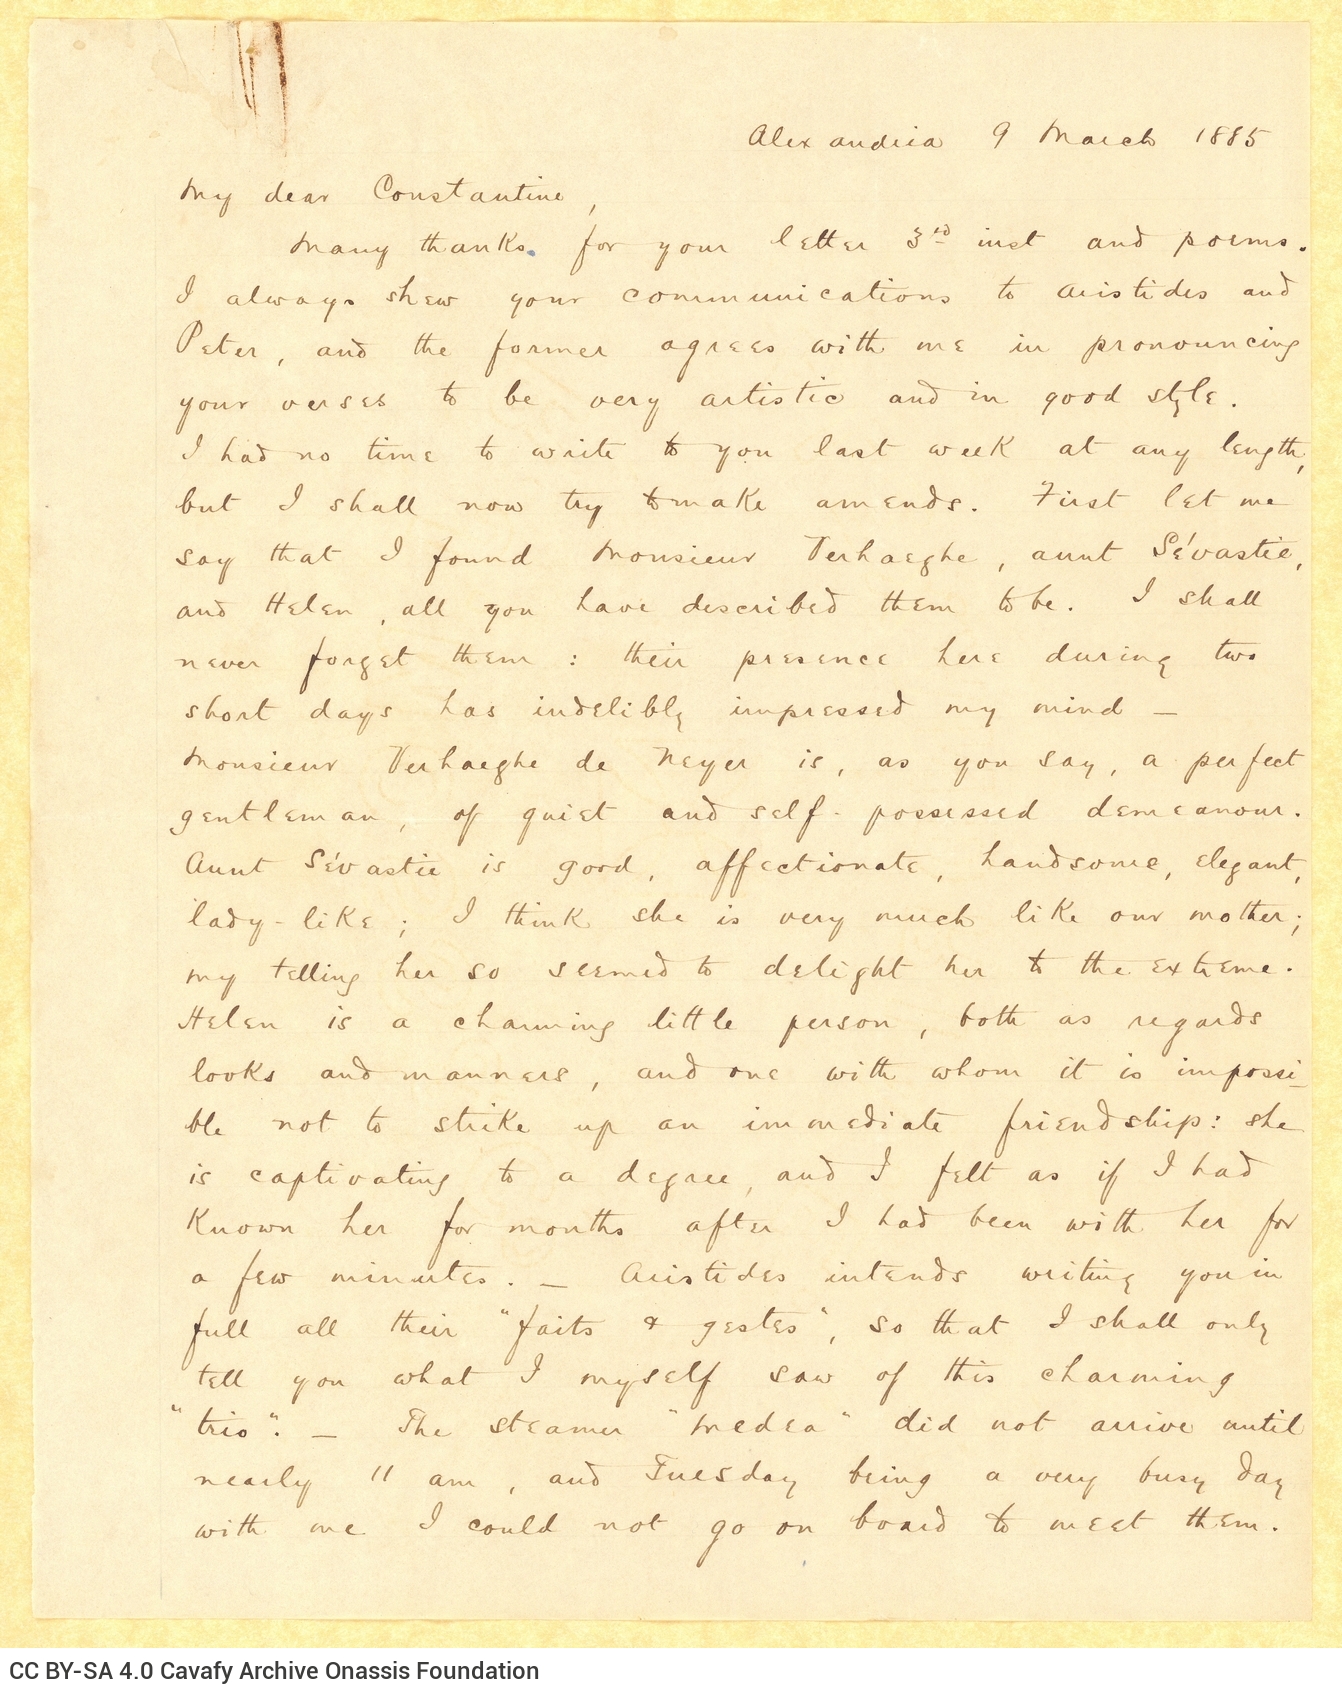 Alexandria 9 March 1885
My dear Constantine,
Many thanks for your letter 3rd inst and poems.
I always shew your communications to Aristides and
Peter, and the former agrees with me in pronouncing
your verses to be very artistic and in good style.
I had no time to write to you last week at any length,
but I shall now try to make amends. First let me
say that I found Monsieur Verhaeghe, aunt Sévastie,
and Helen, all you have described them to be. I shall
never forget them : their presence here during two
short days has indelibly impressed my mind —
Monsieur Verhaeghe de Neyer is, as you say, a perfect
gentleman, of quiet and self-possessed demeanour.
Aunt Sévastie is good, affectionate, handsome, elegant,
lady-like ; I think she is very much like our mother;
my telling her so seemed to delight her to the extreme.
Helen is a charming little person, both as regards
looks and manners, and one with whom it is impossi-
ble not to strike up an immediate friendship: she
is captivating to a degree, and I felt as if I had
known her for months after I had been with her for
a few minutes. — Aristides intends writing you in
full all their "faits & gestes", so that I shall only
tell you what I myself saw of this charming
"trio". — The steamer "Medea" did not arrive until
nearly 11 am, and Tuesday being a very busy day
with me I could not go on board to meet them.
CC BY-SA 4.0 Cavafy Archive Onassis Foundation